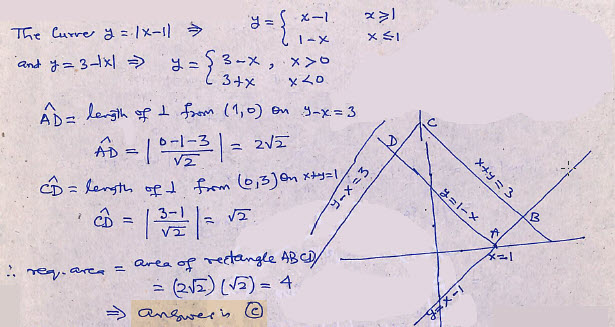 The Curves y = |x-1| ⇒ y = { x-1 x ≥ 1
1-x x ≤ 1
and y = 3-|x| ⇒ y = { 3-x , x > 0
3+x x < 0
AD̂ = length of ⊥ from (1,0) on y-x = 3
AD̂ = | (0-1-3)/√2 | = 2√2
CD̂ = length of ⊥ from (0,3) on x+y=1
CD̂ = | (3-1)/√2 | = √2
∴ req. area = area of rectangle ABCD
= (2√2) (√2) = 4
⇒ answer is ©
C
D
y-x=3
x+y=3
y=1-x
B
A
x=1
y=x-1